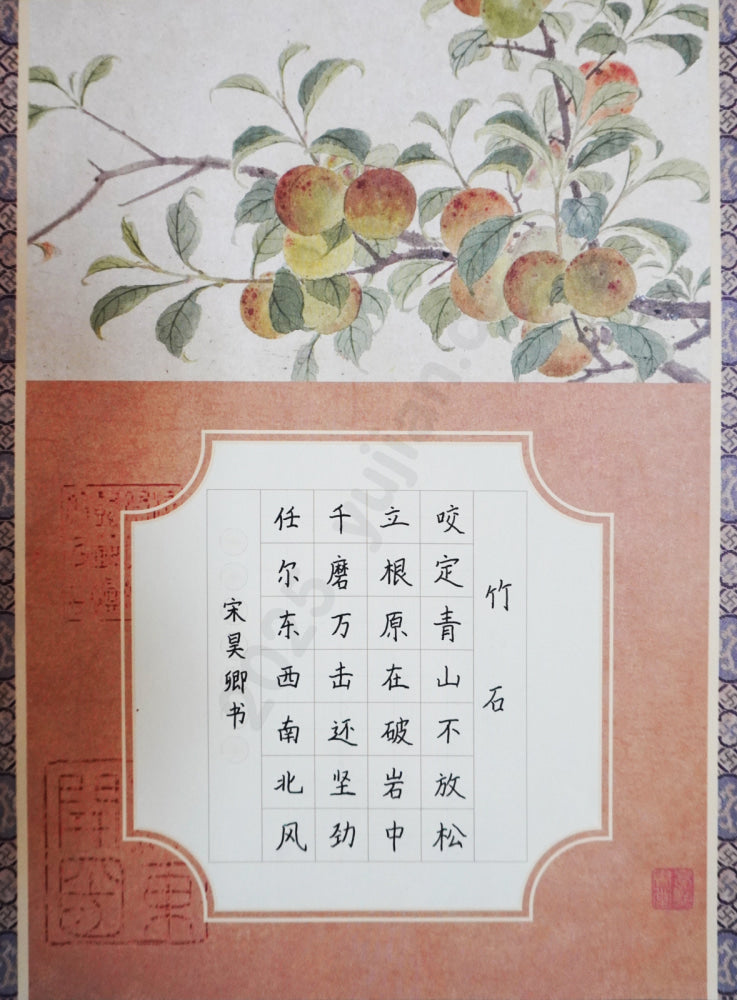 竹石
咬定青山不放松
立根原在破岩中
千磨万击还坚劲
任尔东西南北风
宋昊卿书
©2025 yujian.c